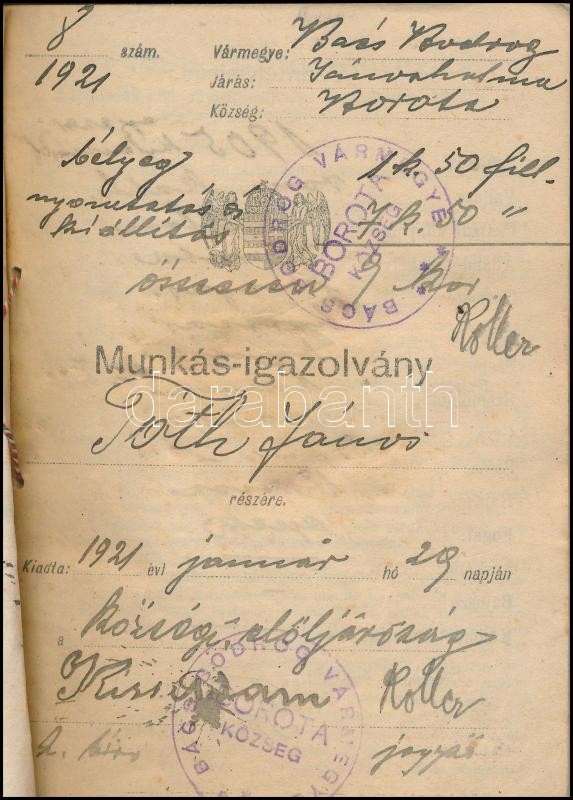 8 szám. Vármegye: Bács Bodrog
1921 Járás: Jánoshalma
Község: Borota
bélyeg 1 k. 50 fill.
nyomtatás és
kiállítás 7 k. 50 "
összesen 9 kor
BÁCS BODROG VÁRMEGYE
BOROTA
KÖZSÉG
Koller
Munkás-igazolvány
darabanth
Tóth János
részére.
Kiadta: 1921 évi január hó 29 napján
a községi elöljáróság
Kiss Koller
h. biró jegyző
BÁCS BODROG VÁRMEGYE
BOROTA
KÖZSÉG